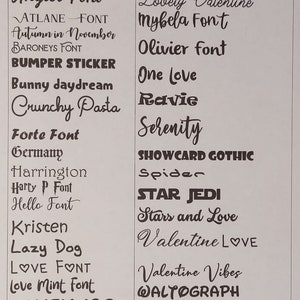 Atlane Font
Autumn in November
Baroneys Font
BUMPER STICKER
Bunny daydream
Crunchy Pasta
Forte Font
Germany
Harrington
Harry P Font
Hello Font
Kristen
Lazy Dog
Love Font
Love Mint Font
Lovely Valentine
Mybela Font
Olivier Font
One Love
Ravie
Serenity
SHOWCARD GOTHIC
Spider
STAR JEDI
Stars and Love
Valentine Love
Valentine Vibes
WALTOGRAPH